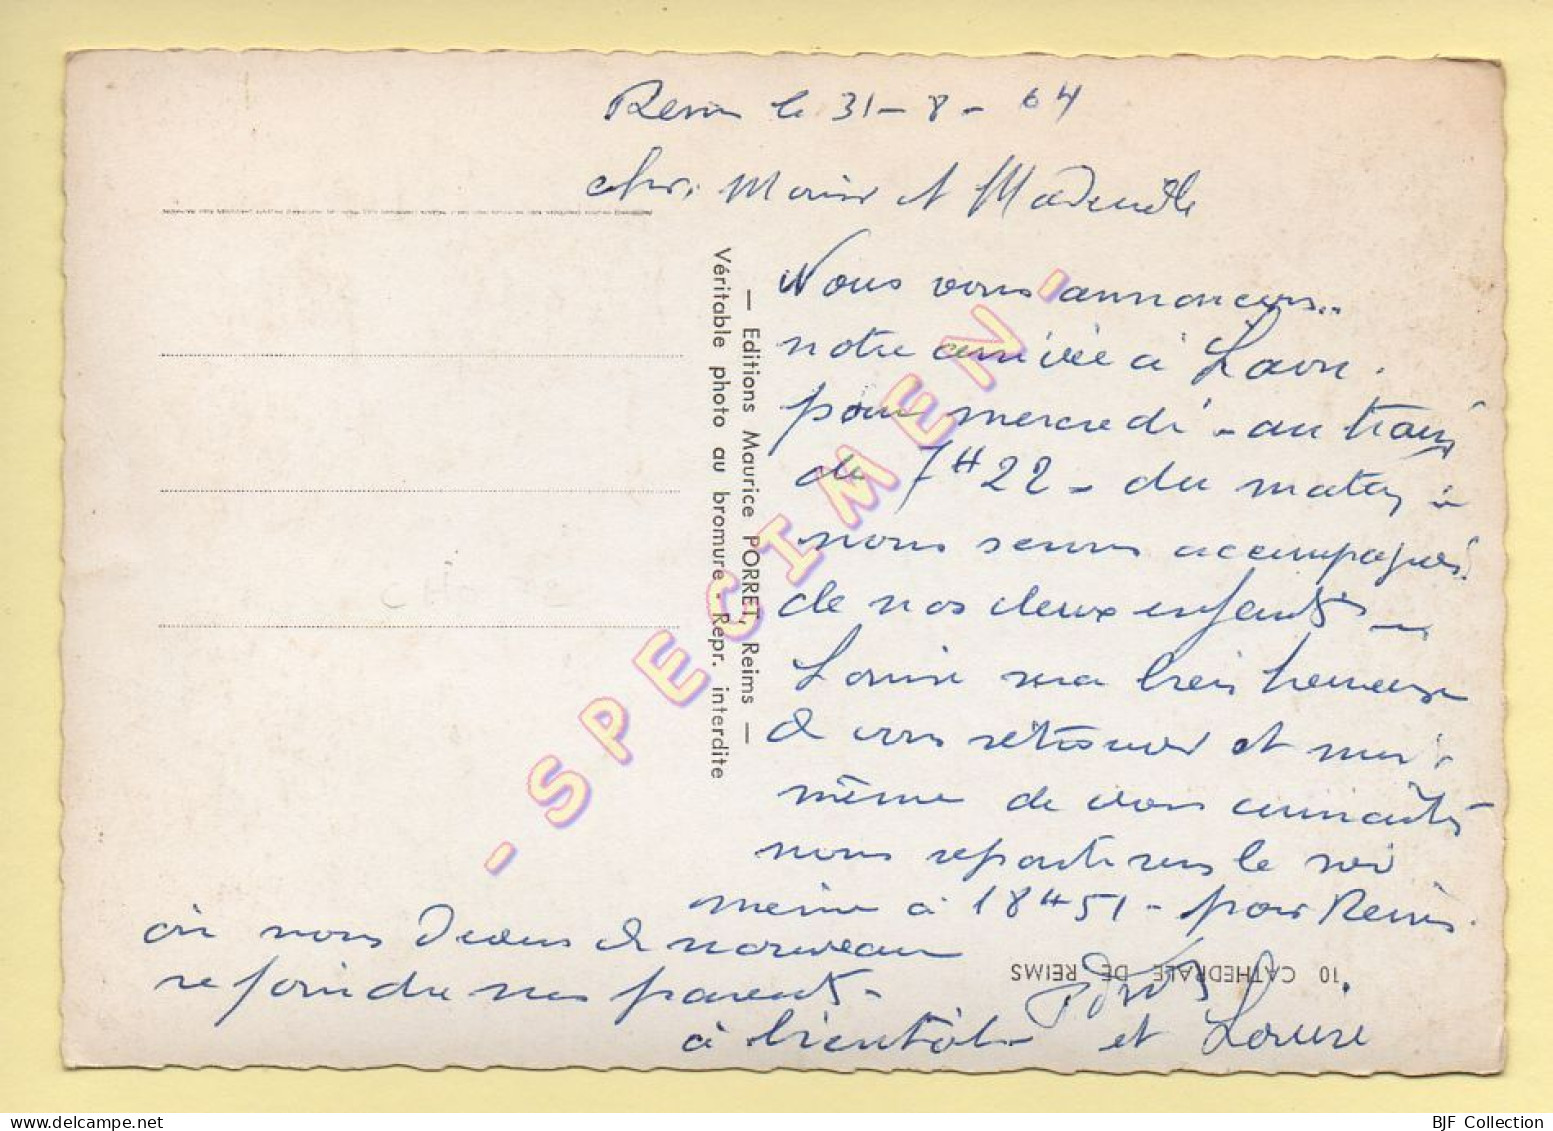 Reims le 31-8-64
Nous vous annonçons..
notre arrivée à Laon.
pour mercredi - au train
de 7H22 - du matin
nous serons accompagnés
de nos deux enfants
très heureuse
de vous retrouver et moi
même de vous connaître
nous repartirons le soi
même à 18H51 - pour Reims.
où nous devons de nouveau
rejoindre nos parents -
à bientôt
et Louise
— Editions Maurice PORRET, Reims —
Véritable photo au bromure - Repr. interdite
10 CATHEDRALE DE REIMS
- SPECIMEN -
BJF Collection